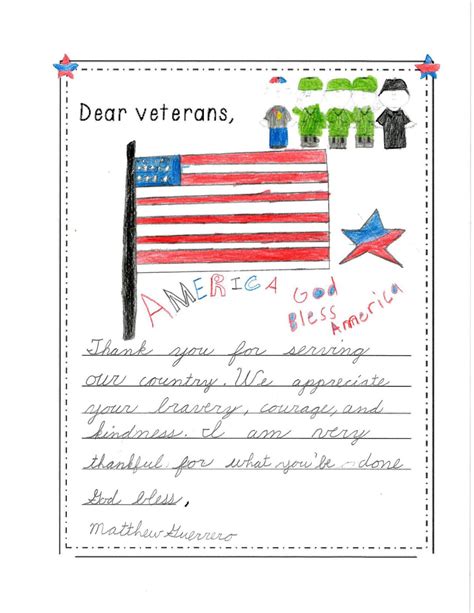 Dear veterans,
AMERICA
God
Bless America
Thank you for serving
our country. We appreciate
your bravery, courage, and
kindness. I am very
thankful for what you'be done
God bless,
Matthew Guerrero